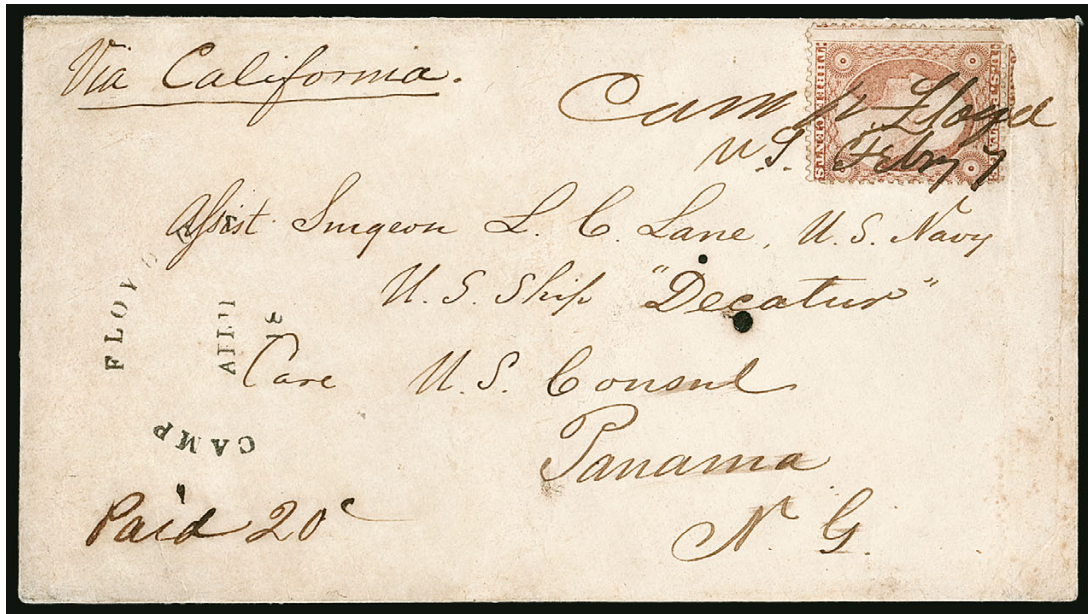 Via California.
Camp Floyd
U.S. Febry 7
THREE CENTS
Assist. Surgeon L. C. Lane, U.S. Navy
U.S. Ship "Decatur"
Care U.S. Consul
Panama
N. G.
CAMP FLOYD
Paid 20c